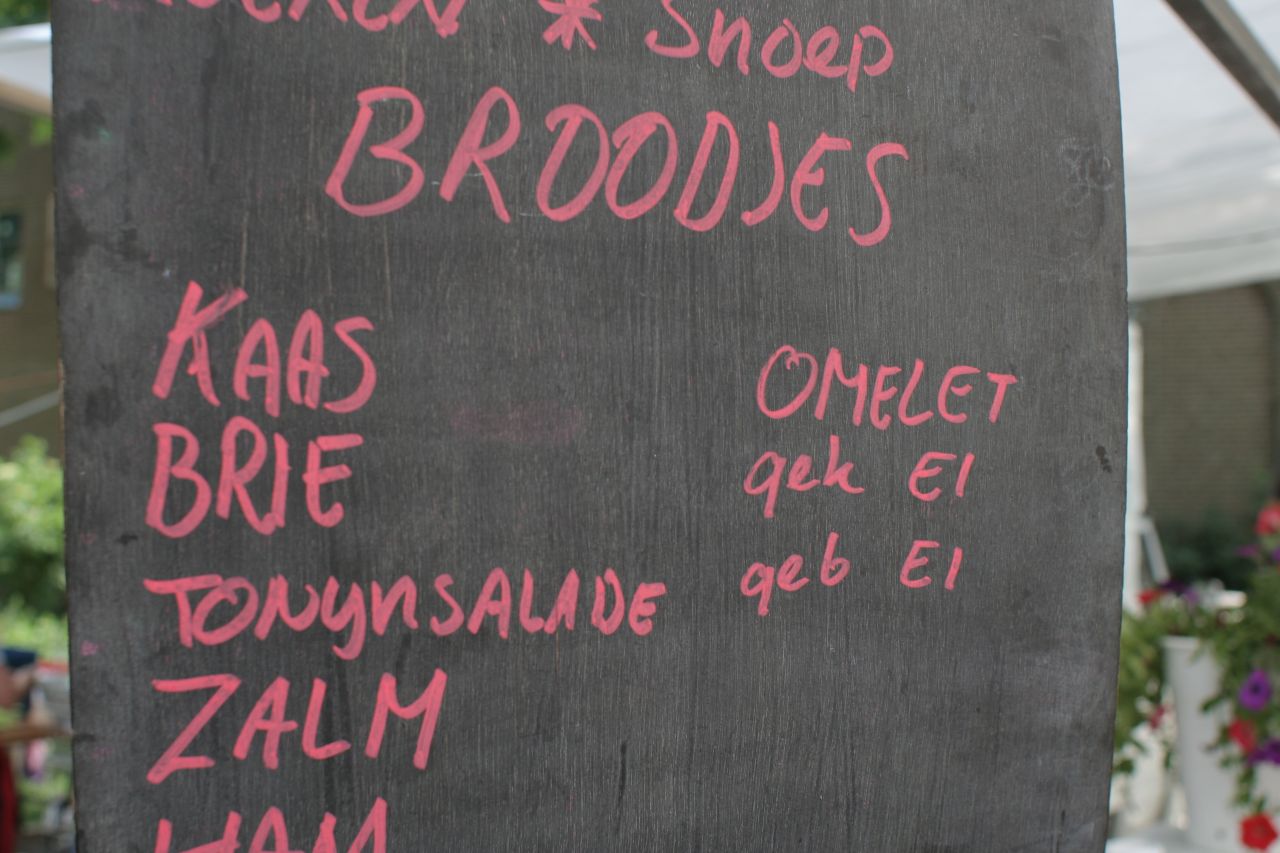 * Snoep
BROODJES
KAAS
BRIE
TONYNSALADE
ZALM
HAM
OMELET
gek EI
geb EI